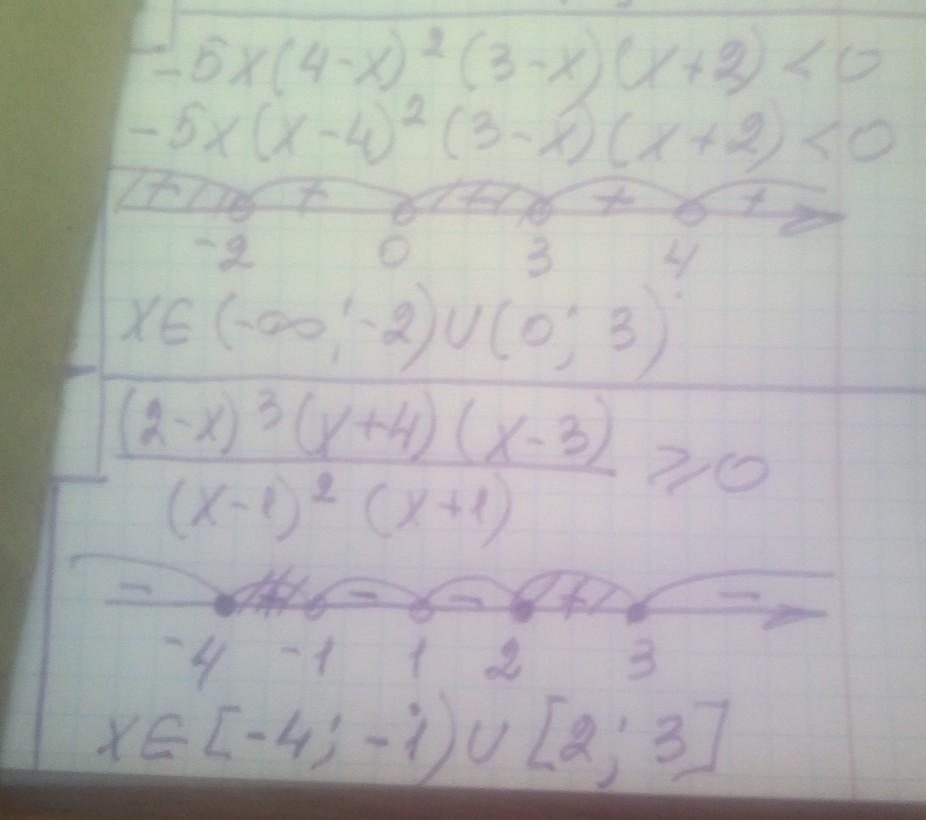 -5x(4-x)² (3-x)(x+2) < 0
-5x(x-4)² (3-x)(x+2) < 0
+ + + + +
-2 0 3 4
x∈(-∞; -2)∪(0; 3)
(2-x)³(x+4)(x-3)
≥0
(x-1)² (x+1)
- + - - + -
-4 -1 1 2 3
x∈[-4; -1)∪[2; 3]